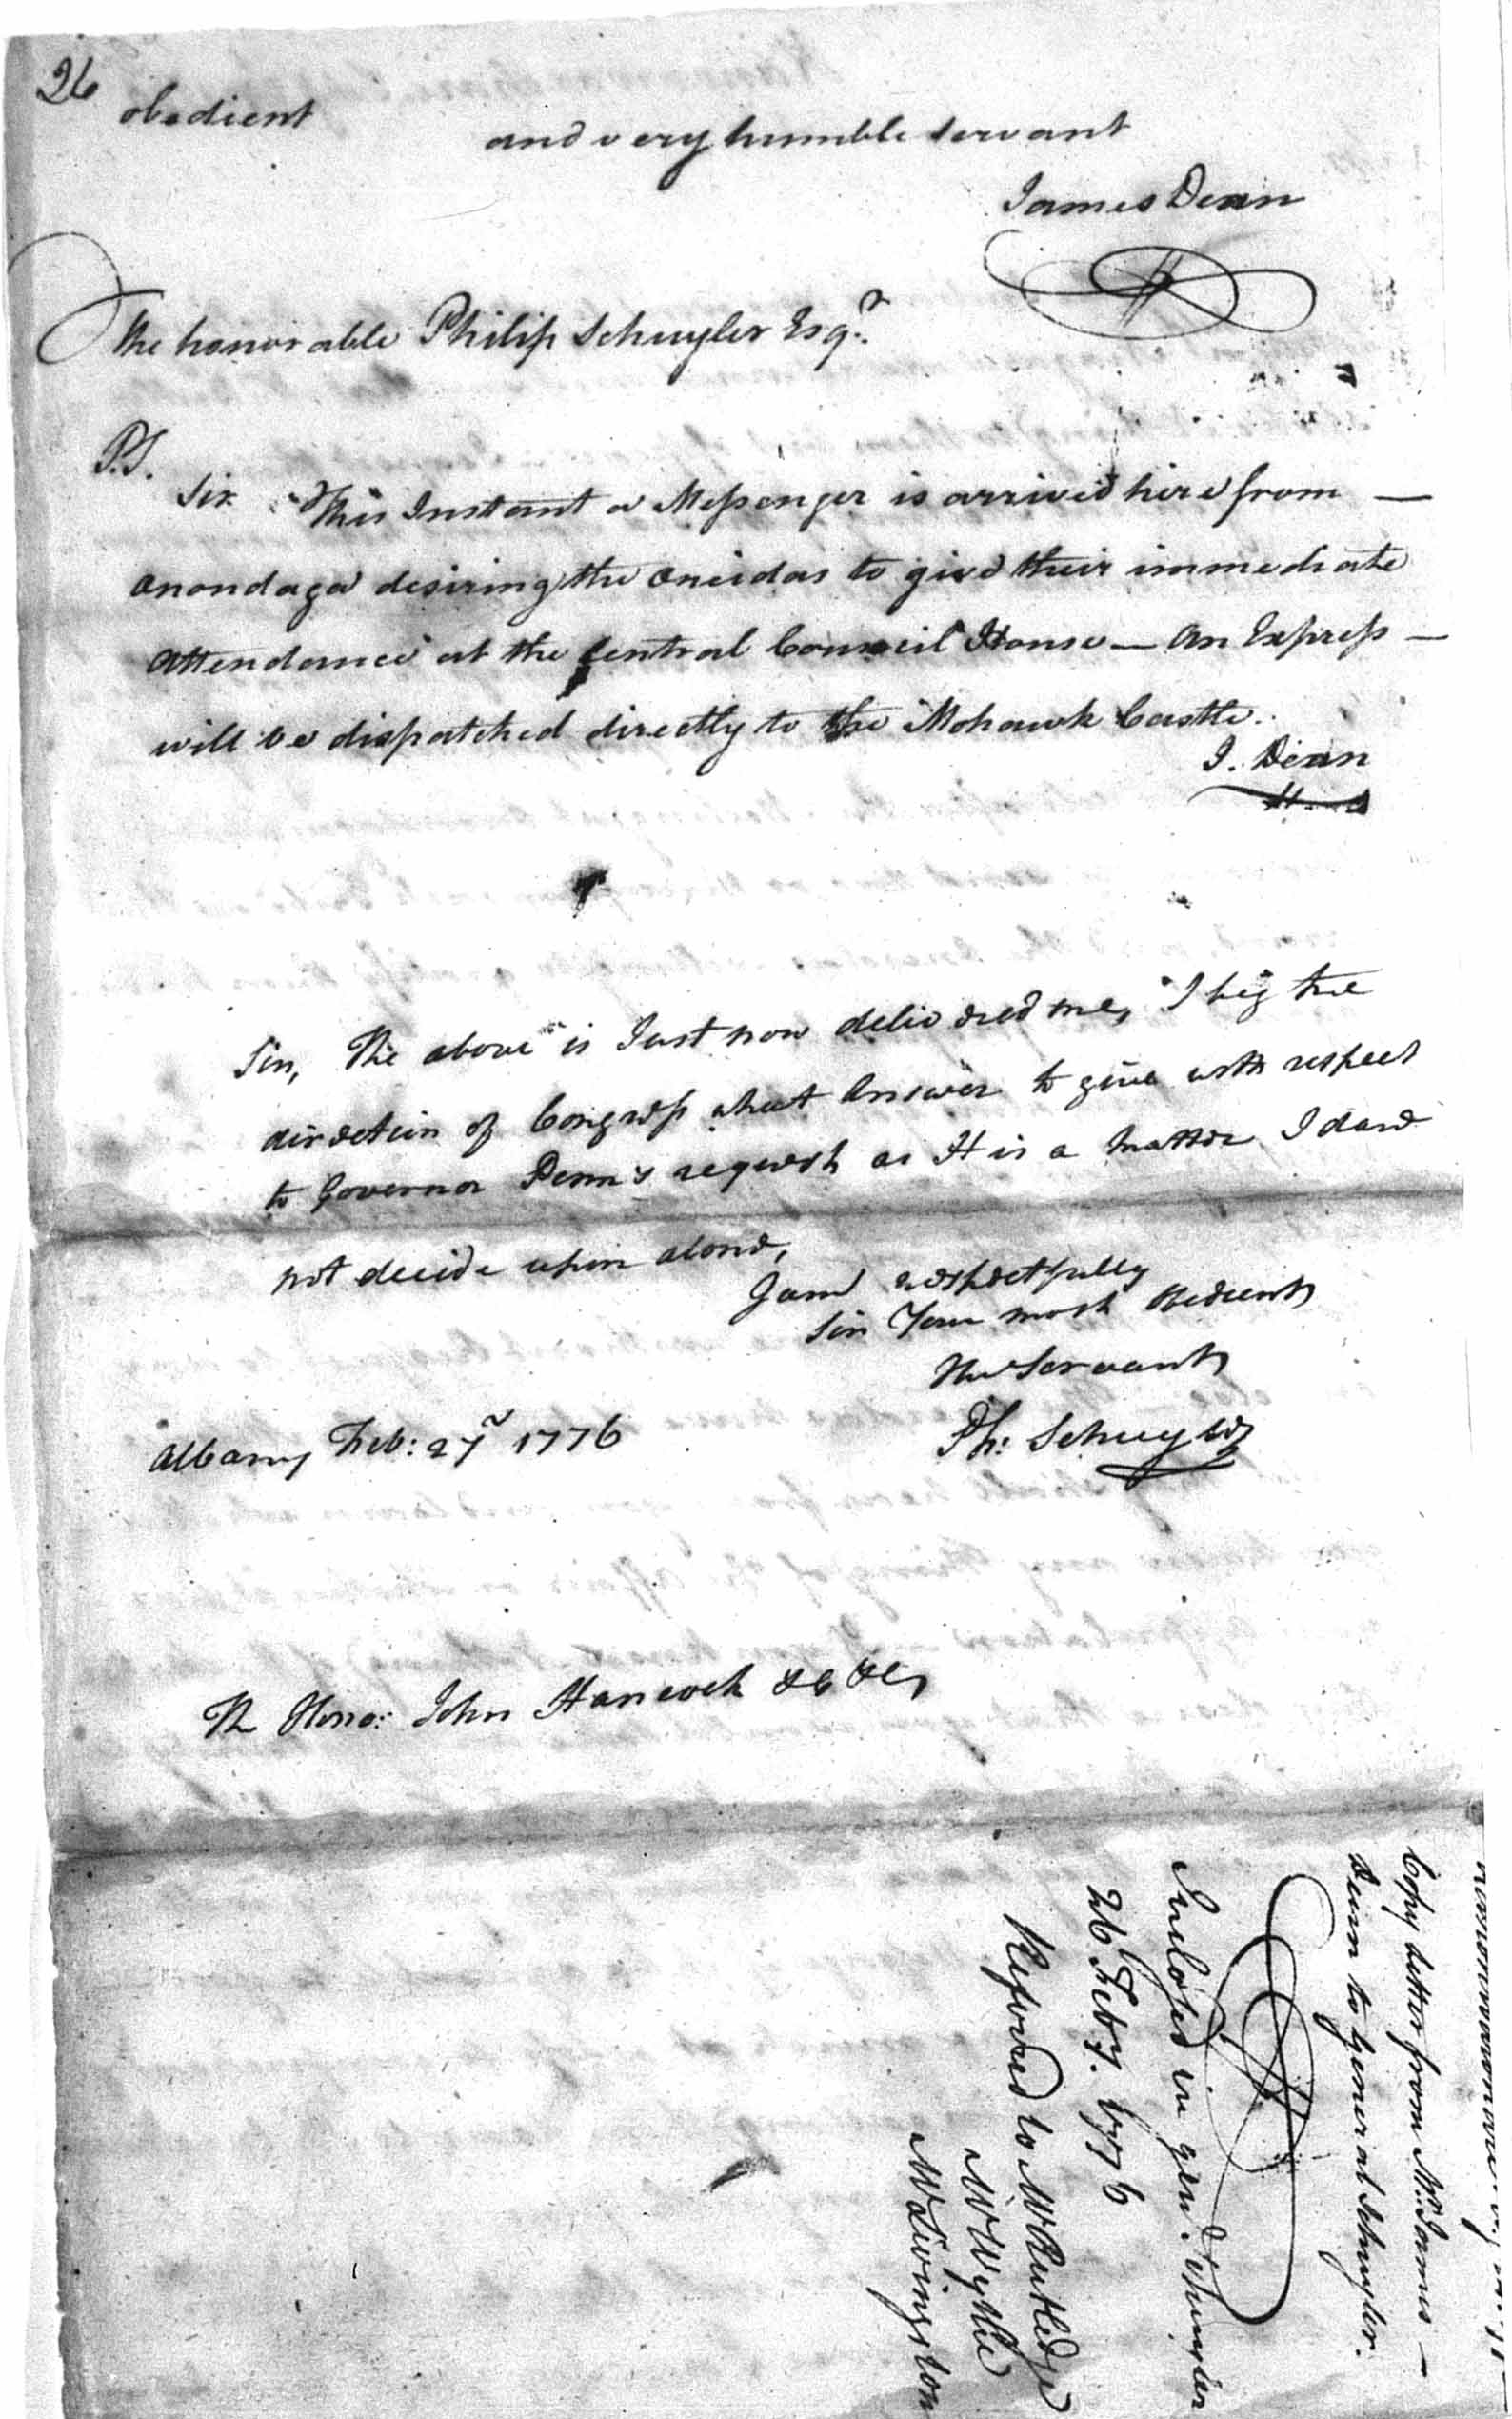 26
obedient
and very humble servant
James Dean
The honorable Philip Schuyler Esqr.
P.S.
Sir This Instant a Messenger is arrived here from —
Onondaga desiring the Oneidas to give their immediate
Attendance at the Central Council House — An Express —
will be dispatched directly to the Mohawk Castle.
J. Dean
Sir, The above is Just now delivered me, I beg the
direction of Congress what Answer to give with respect
to Governor Penn's request as It is a matter I dare
not decide upon alone,
I am respectfully
Sir Your most Obedient
Hu Servant
Albany Feb: 27 1776
Ph: Schuyler
The Hono: John Hancock &c &c
Copy Letter from Mr. James —
Dean to General Schuyler.
Inclosed in genl. Schuyler
26 Feby. 1776
Referred to Mr Rutledge
Mr Wythe
Mr Livingston